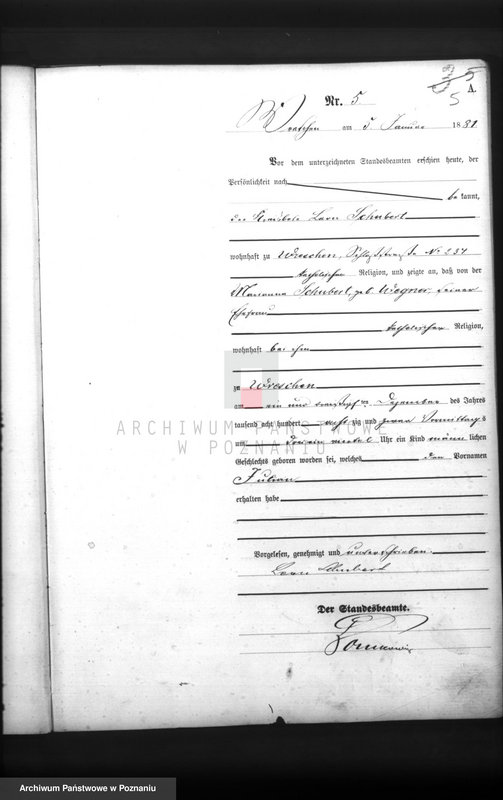 5
A.
5
Nr. 5
Wreschen am 5 Januar 1881
Vor dem unterzeichneten Standesbeamten erschien heute, der
Persönlichkeit nach
bekannt,
der Leon Schubert
wohnhaft zu Wreschen, Schloßstraße No 234
katholischer Religion, und zeigte an, daß von der
Marianna Schubert, geb. Wegner, seiner
Ehefrau
katholischer Religion,
wohnhaft bei ihm
zu Wreschen
am ein und dreißigsten Dezember des Jahres
tausend acht hundert achtzig und zwar Vormittags
um drei ein viertel Uhr ein Kind männlichen
Geschlechts geboren worden sei, welches den Vornamen
Julian
erhalten habe
Vorgelesen, genehmigt und unterschrieben.
Leon Schubert
Der Standesbeamte.
ARCHIWUM PAŃSTWOWE
W POZNANIU
Archiwum Państwowe w Poznaniu